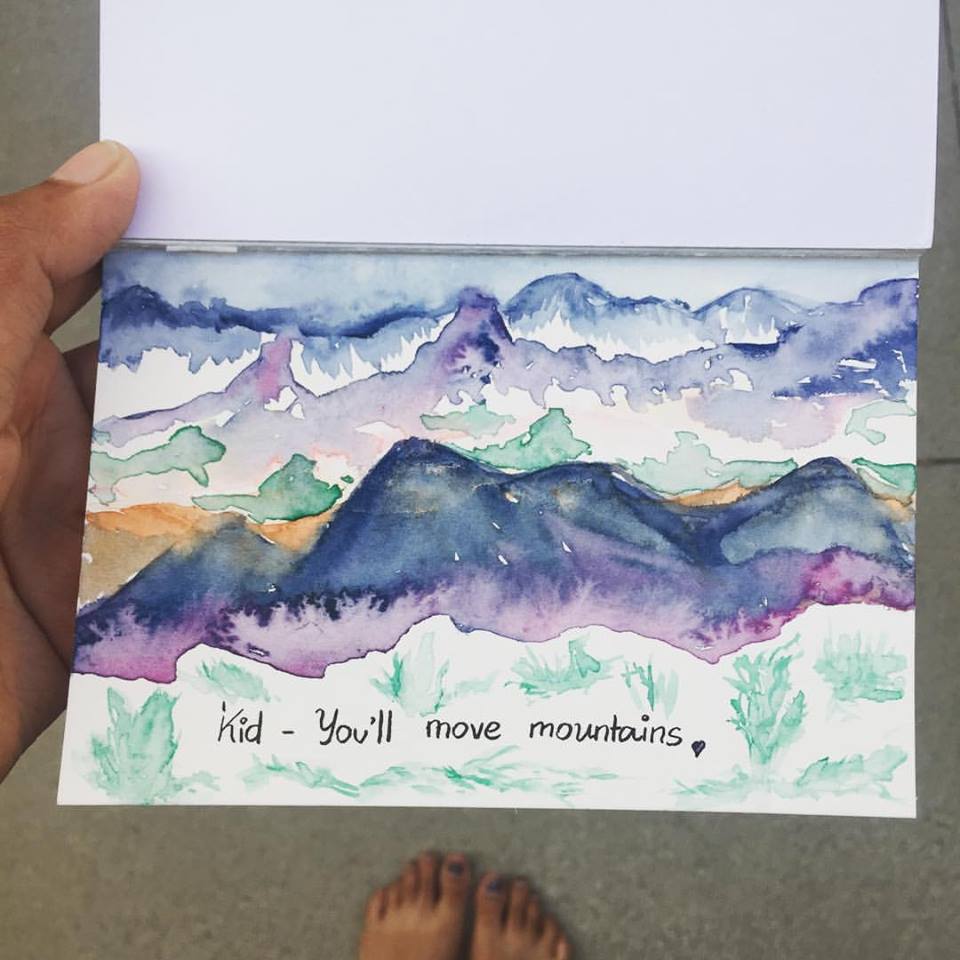 Kid - You'll move mountains.